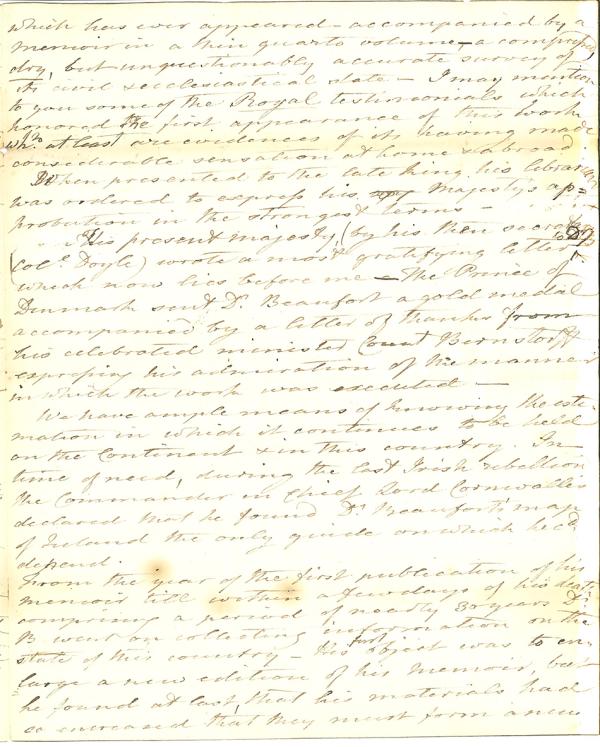 which has ever appeared – accompanied by a
memoir in a thin quarto volume, – a comprehen,
dry, but unquestionably accurate survey of
its civil & ecclesiastical state – I may mention
to you some of the Royal testimonials which
honored the first appearance of this work
wh. at least are evidences of its having made
considerable sensation at home & abroad
When presented to the late king his librarian
was ordered to express his Majesty's ap=
probation in the strongest terms –
His present majesty, (by his then secretary
Col. Doyle) wrote a most gratifying letter to Dr B
which now lies before me – The Prince of
Denmark sent Dr. Beaufort a gold medal
accompanied by a letter of thanks from
his celebrated minister Count Bernstorff
expressing his admiration of the manner
in which the work was executed –
We have ample means of knowing the esti-
mation in which it continues to be held
on the Continent & in this country. In
time of need, during the last Irish rebellion
the Commander in chief Lord Cornwallis
declared that he found Dr. Beaufort's map
of Ireland the only guide on which he cd
depend.
From the year of the first publication of his
memoir till within a few days of his death
comprising a period of nearly 30 years Dr.
B went on collecting information on the
state of this country – his first object was to en,
large a new edition of his memoir, but
he found at last, that his materials had
so encreased that they must form a new